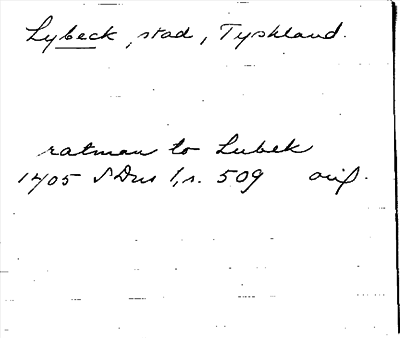 Lybeck, stad, Tyskland.
ratman to Lubek
1405 SDns 1, s. 509 orig.